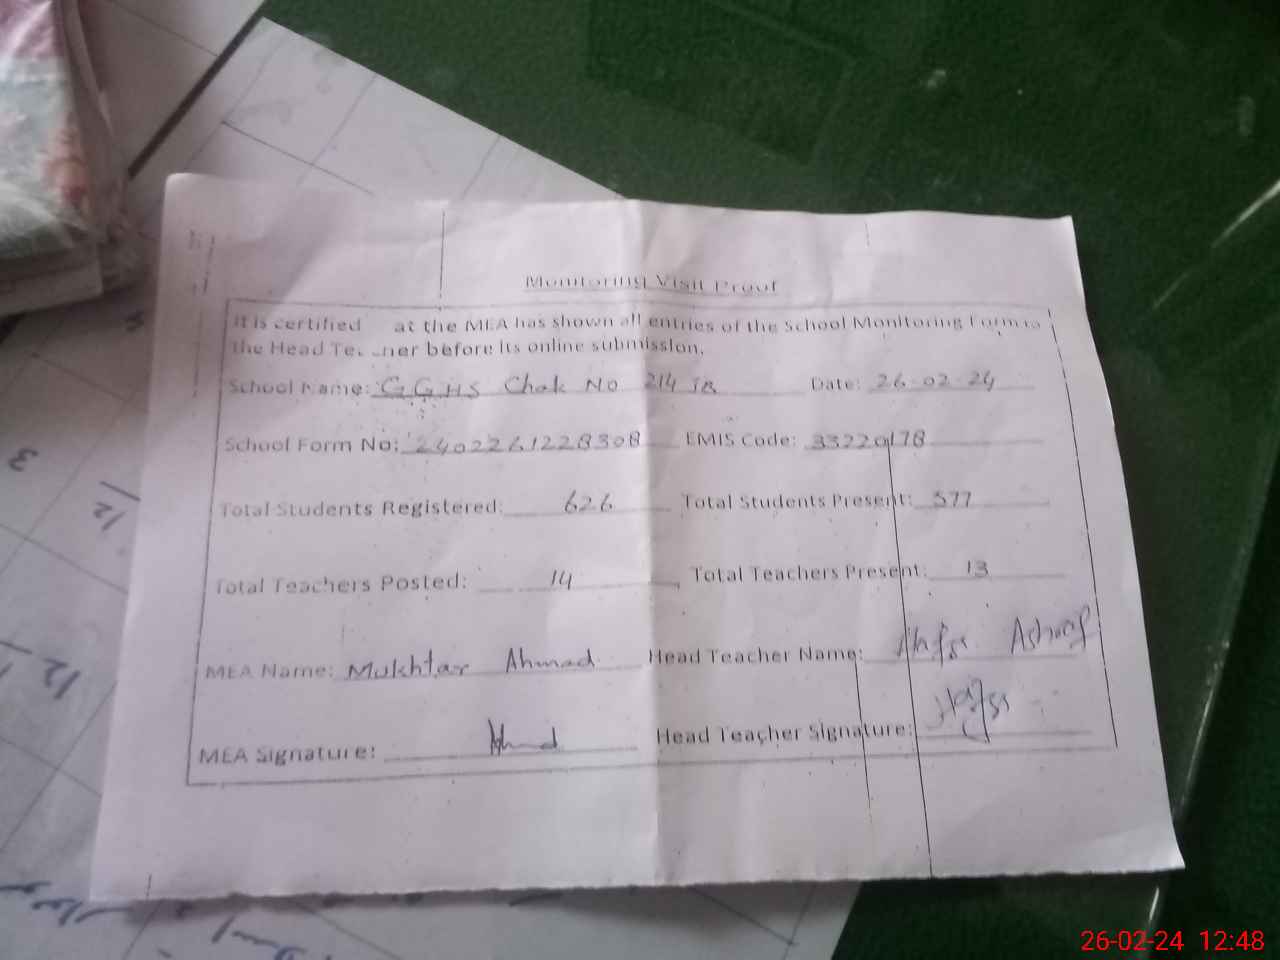 Monitoring Visit Proof
It is certified at the MEA has shown all entries of the School Monitoring Form to
the Head Teacher before its online submission.
School Name: GGHS Chak No 214 JB Date: 26-02-24
School Form No: 240226122B308 EMIS Code: 33220178
Total Students Registered: 626 Total Students Present: 577
Total Teachers Posted: 14 Total Teachers Present: 13
MEA Name: Mukhtar Ahmad Head Teacher Name: Hafsa Ashraf
MEA Signature: Ahmad Head Teacher Signature: Hafsa
3
12
12
26-02-24 12:48